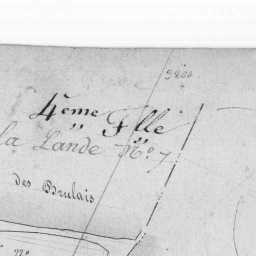 5200
4ème Flle
la Lande N° 7
des Brulais